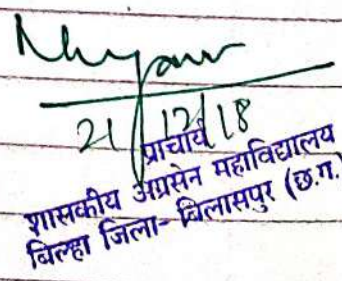 21/12/18
प्राचार्य
शासकीय अग्रसेन महाविद्यालय
बिल्हा जिला- बिलासपुर (छ.ग.)